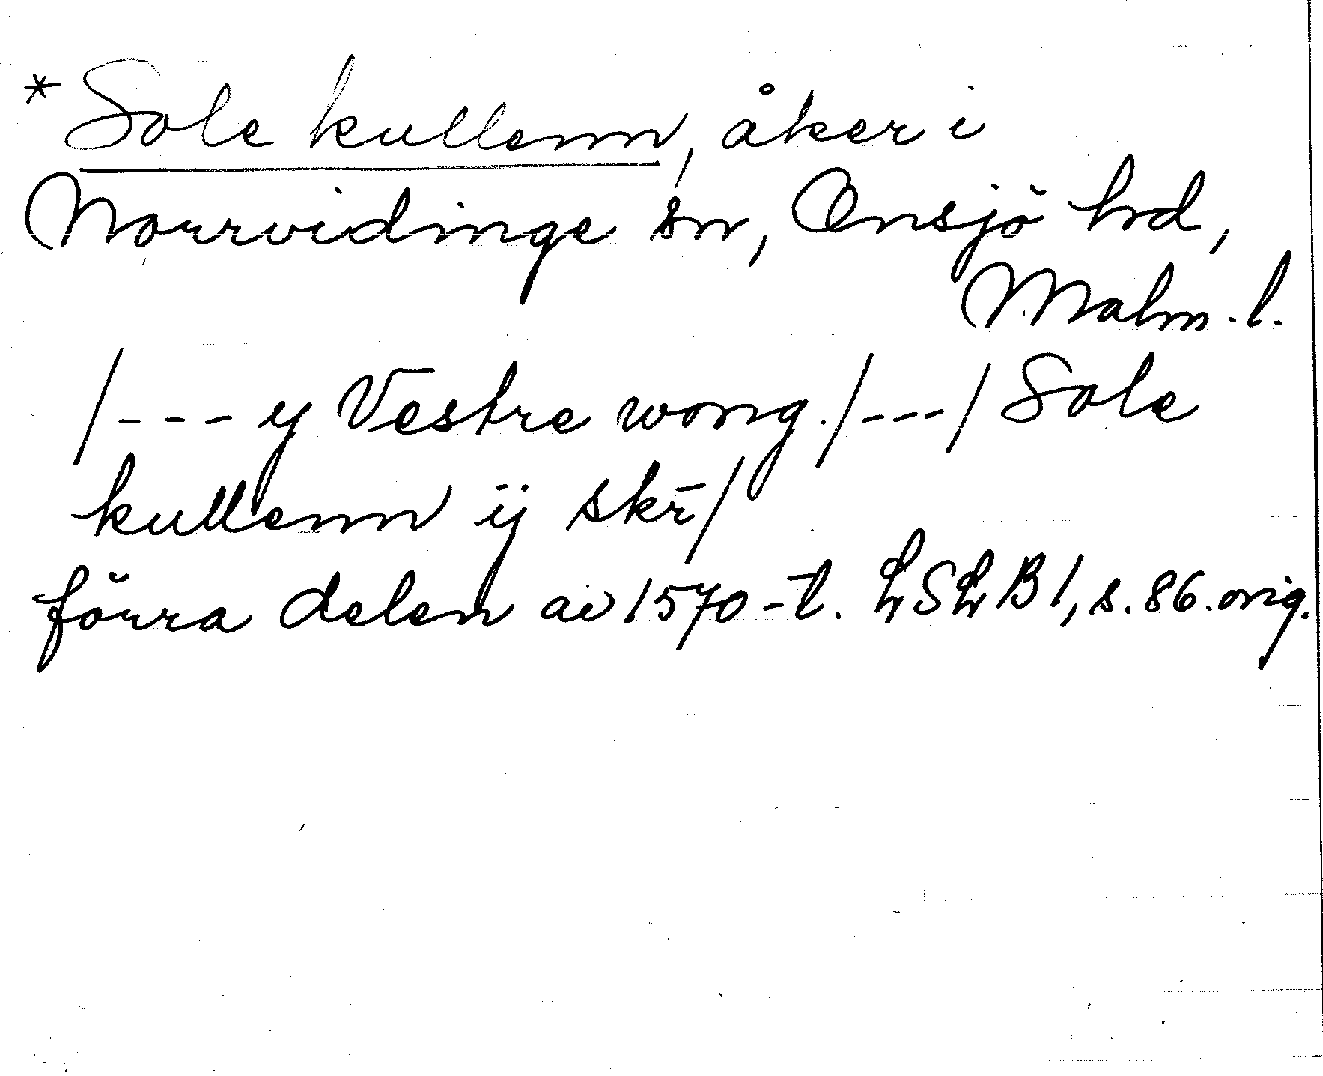 * Sole kullenn, åker i
Norrvidinge sn, Onsjö hd,
Malm. l.
/--- y Vestre wong. /---/ Sole
kullenn ij skr̄/
förra delen av 1570-t. LSLB1, s. 86. orig.